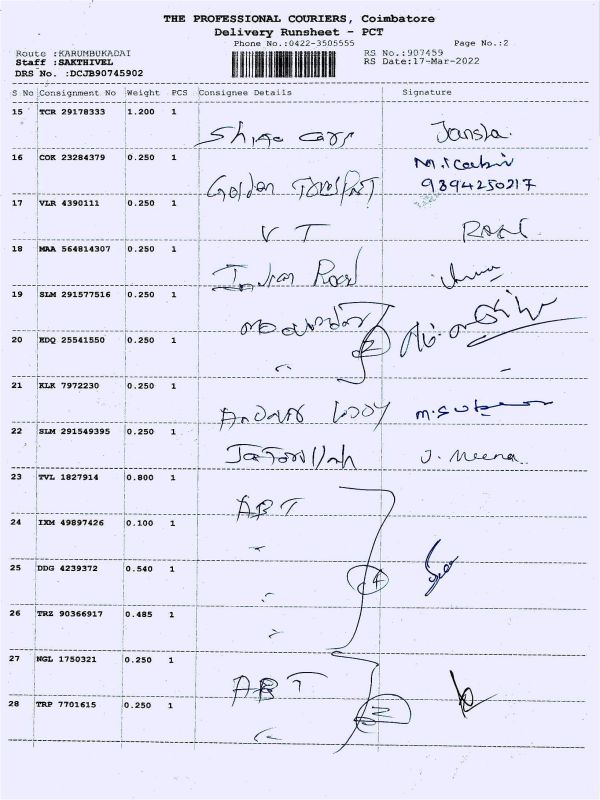 THE PROFESSIONAL COURIERS, Coimbatore
Delivery Runsheet - PCT
Phone No.:0422-3505555 Page No.:2
Route :KARUMBUKADAI RS No.:907459
Staff :SAKTHIVEL RS Date:17-Mar-2022
DRS No. :DCJB90745902
S No Consignment No Weight PCS Consignee Details Signature
15 TCR 29178333 1.200 1
16 COK 23284379 0.250 1
9894250217
17 VLR 4390111 0.250 1
V T
18 MAA 564814307 0.250 1
Indian Road
19 SLM 291577516 0.250 1
20 EDQ 25541550 0.250 1
2
21 KLK 7972230 0.250 1
22 SLM 291549395 0.250 1
J. Meena
23 TVL 1827914 0.800 1
ABT
24 IXM 49897426 0.100 1
25 DDG 4239372 0.540 1
4
26 TRZ 90366917 0.485 1
27 NGL 1750321 0.250 1
ABT
28 TRP 7701615 0.250 1
2